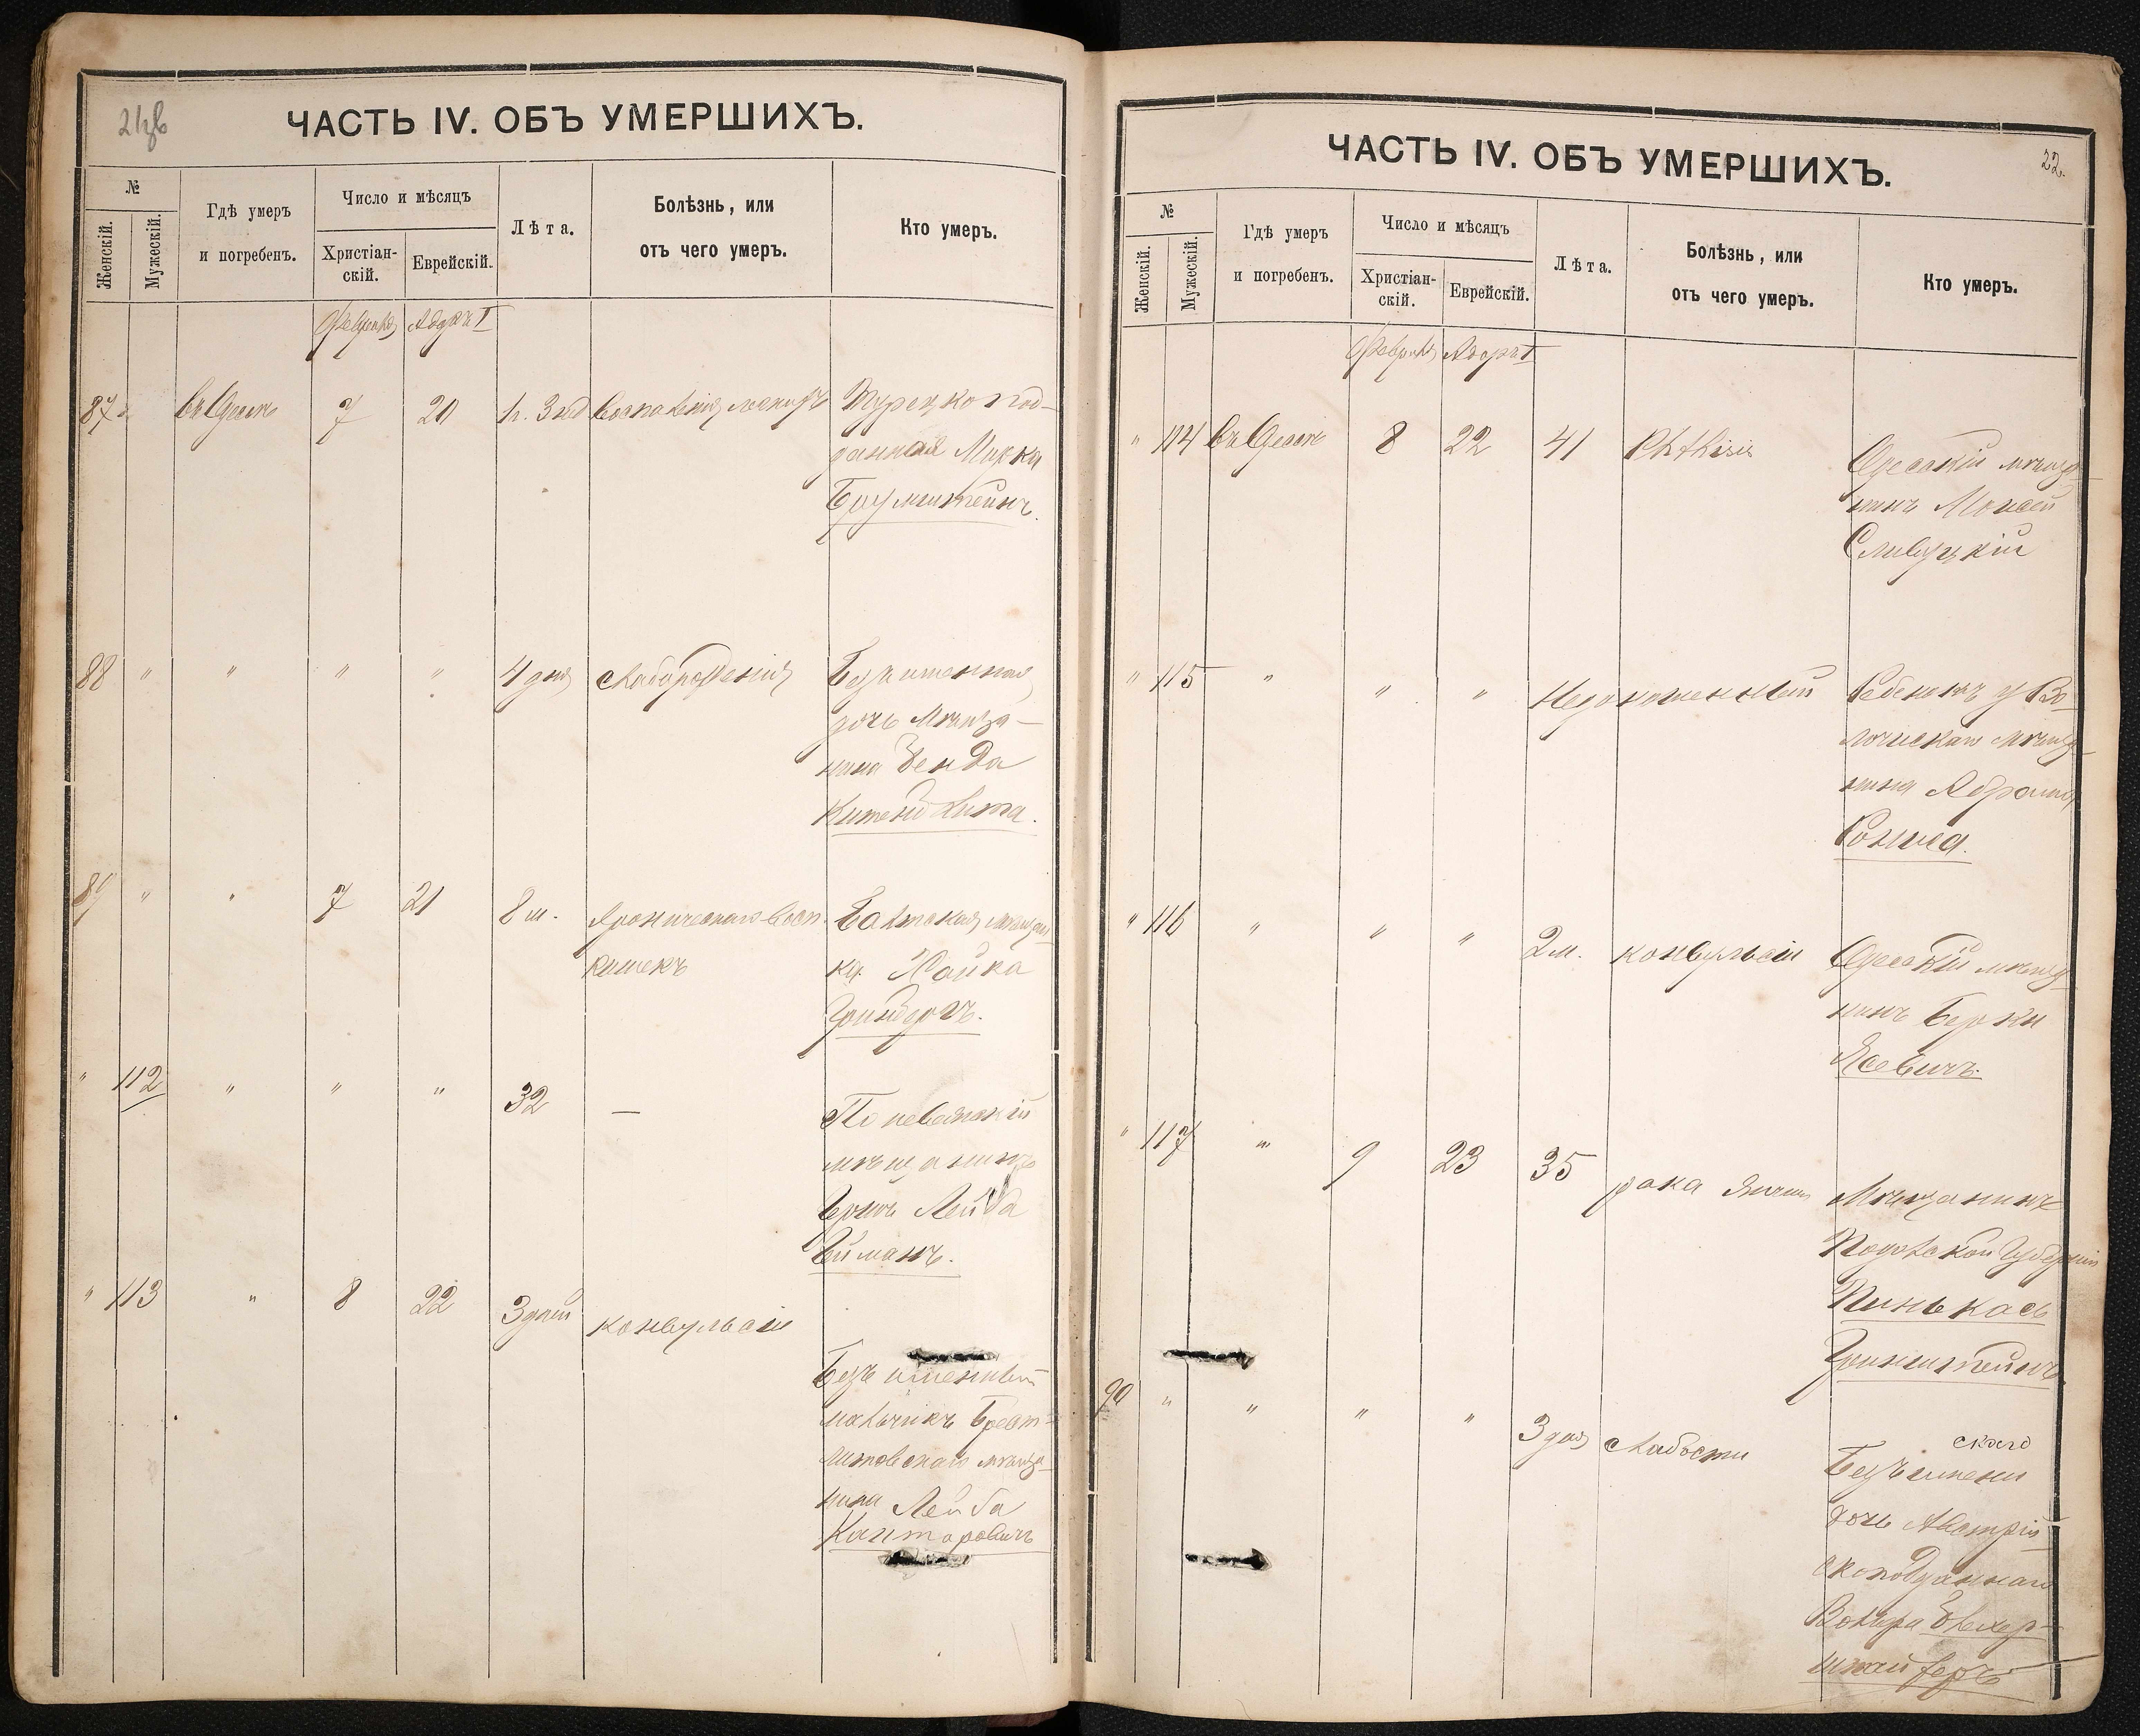 ЧАСТЬ IV. ОБЪ УМЕРШИХЪ.
№
Женскій.
Мужескій.
Гдѣ умеръ
и погребенъ.
Число и мѣсяцъ
Христіан-
скій.
Еврейскій.
Лѣта.
Болѣзнь, или
отъ чего умеръ.
Кто умеръ.
Февраль Адаръ I
87 въ Одессѣ 7 20 воспаленія Турецкопод-
данная Мирка
Боумштейнъ.
88 " " " " 4 дня Слаборожденія Безъименная
дочь Мѣща-
нина
89 " " 7 21 8 м. Хроническаго восп. Балтская мѣщан-
кишекъ ка Хайка
Гринбергъ.
" 112 " " " 32 — Поневежскій
мѣщанинъ
Гершъ Лейба
" 113 " 8 22 3 дней конвульсіи
Безъименный
мальчикъ Брест-
литовскаго мѣща-
нина Лейба
Канторовичъ
ЧАСТЬ IV. ОБЪ УМЕРШИХЪ.
22.
№
Женскій.
Мужескій.
Гдѣ умеръ
и погребенъ.
Число и мѣсяцъ
Христіан-
скій.
Еврейскій.
Лѣта.
Болѣзнь, или
отъ чего умеръ.
Кто умеръ.
Февраль Адаръ I
" 114 въ Одессѣ 8 22 41 Phthisis Одесскій мѣща-
нинъ Моисей
Славуцкій
" 115 " " " Недоношенный Ребенокъ у Во-
лочискаго мѣща-
нина Абрама
" 116 " " " 2 м. конвульсіи Одесскій мѣща-
нинъ Берки
Ясевичъ.
" 117 " 9 23 35 рака Мѣщанинъ
Подольской Губерніи
Пинькасъ
Гринштейнъ.
90 " " " " 3 дня слабости
скаго
Безъимени
дочь Австрій-
скоподданнаго
Вольфа